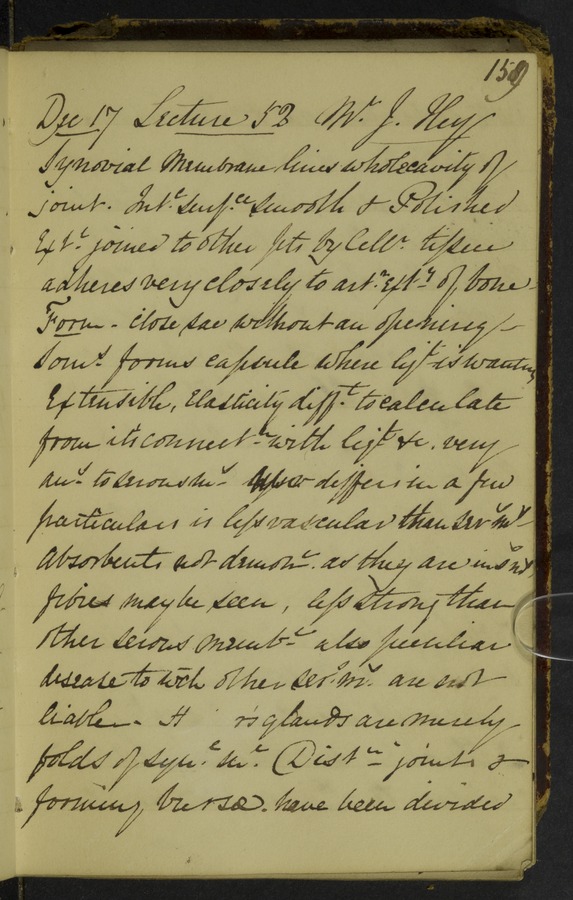 159
Dec 17 Lecture 52 Mr J. Hey
Synovial Membrane lines whole cavity of
joint. Intl surfce smooth & Polished
Extl joined to other pts by Cellr tissue
adheres very closely to artr exty of bone
Form - close sac without an opening -
Somts forms capsule where ligt is wanting
Extensible, Elasticity difft to calculate
from its connectn with ligt &c. very
ans to serous m differs in a few
particulars is less vascular than sers m
Absorbents not demon as they are in s m
fibres may be seen, less strong than
other serous memb also peculiar
disease to wch other sers m are not
liable - H rs glands are merely
folds of syn m (Dist joints &
forming bursæ. have been divided